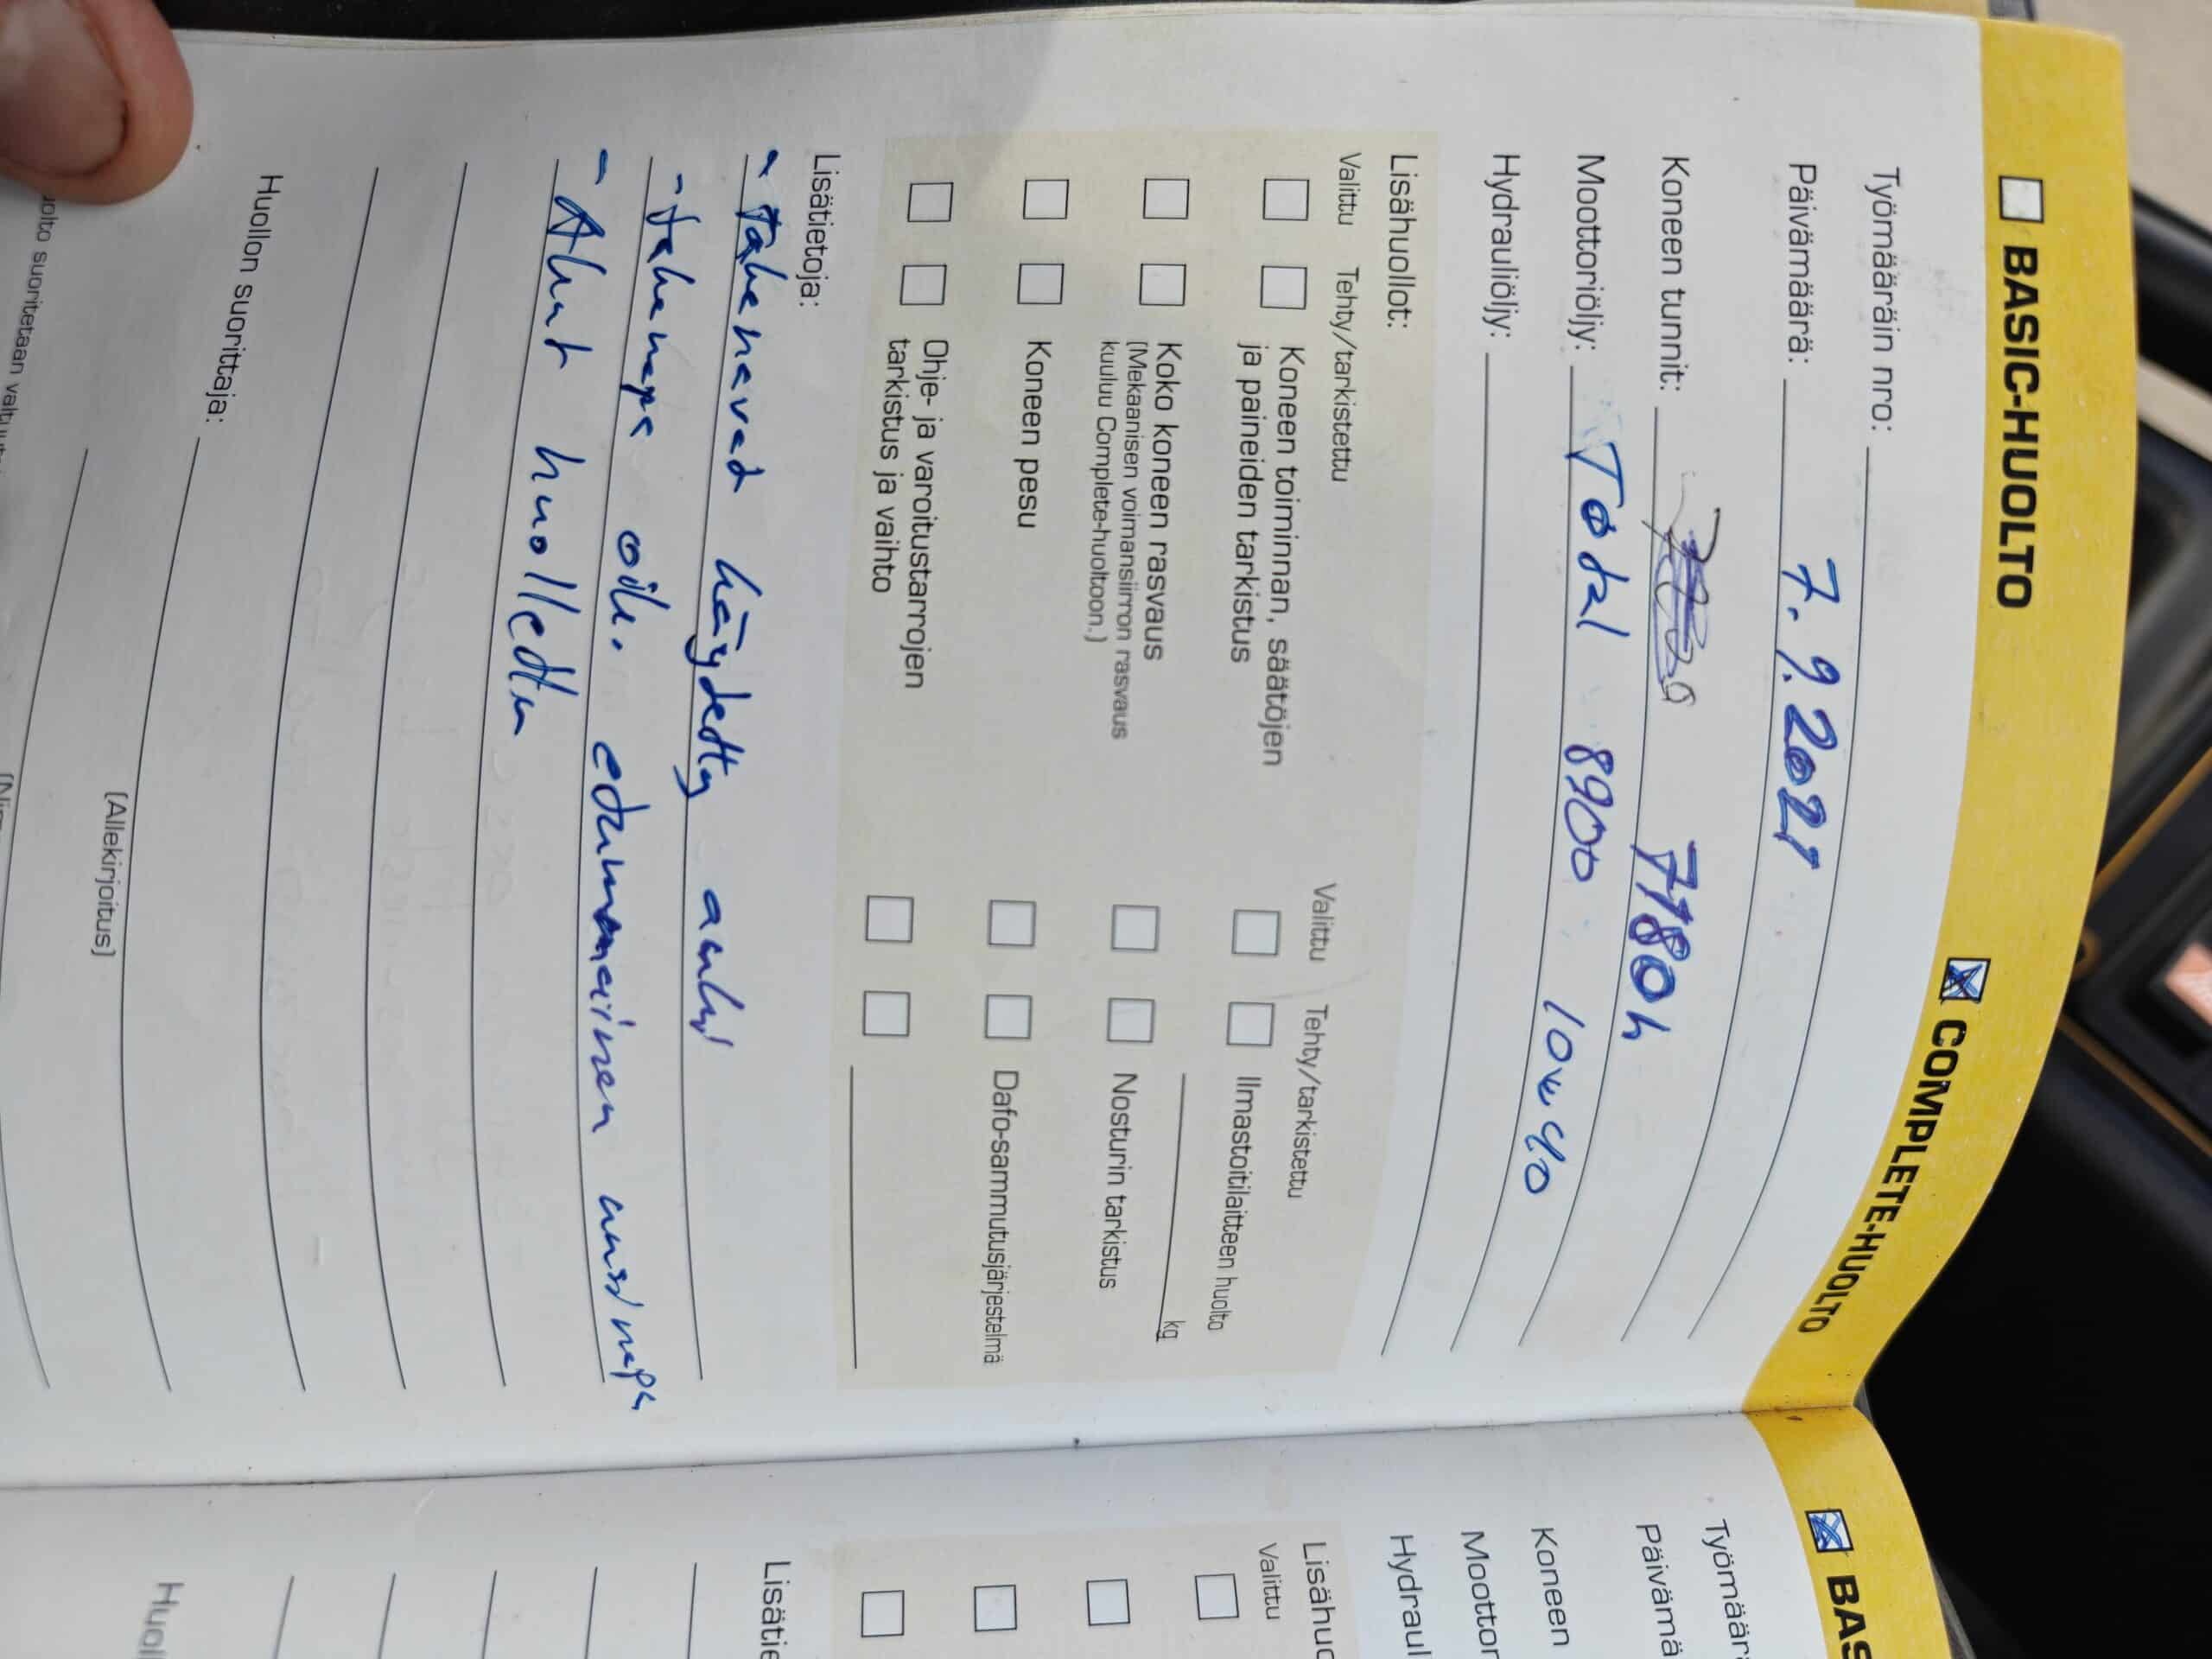 BASIC-HUOLTO
COMPLETE-HUOLTO
Työmääräin nro:
Päivämäärä: 7.9.2021
Koneen tunnit: 7780h
Moottoriöljy: Total 8900 10w40
Hydrauliöljy:
Lisähuollot:
Valittu Tehty/tarkistettu
Koneen toiminnan, säätöjen
ja paineiden tarkistus
Koko koneen rasvaus
(Mekaanisen voimansiirron rasvaus
kuuluu Complete-huoltoon.)
Koneen pesu
Ohje- ja varoitustarrojen
tarkistus ja vaihto
Valittu Tehty/tarkistettu
Ilmastoitilaitteen huolto
kg
Nosturin tarkistus
Dafo-sammutusjärjestelmä
Lisätietoja:
- Takanavat käydetty
- takanapa oik. edummainen uusi napa
- Akut huollettu
Huollon suorittaja:
(Allekirjoitus)
uolto suoritetaan
BAS
Työmäärä
Päivämä
Koneen
Moottor
Hydraul
Lisähuo
Valittu
Lisätie
Huol